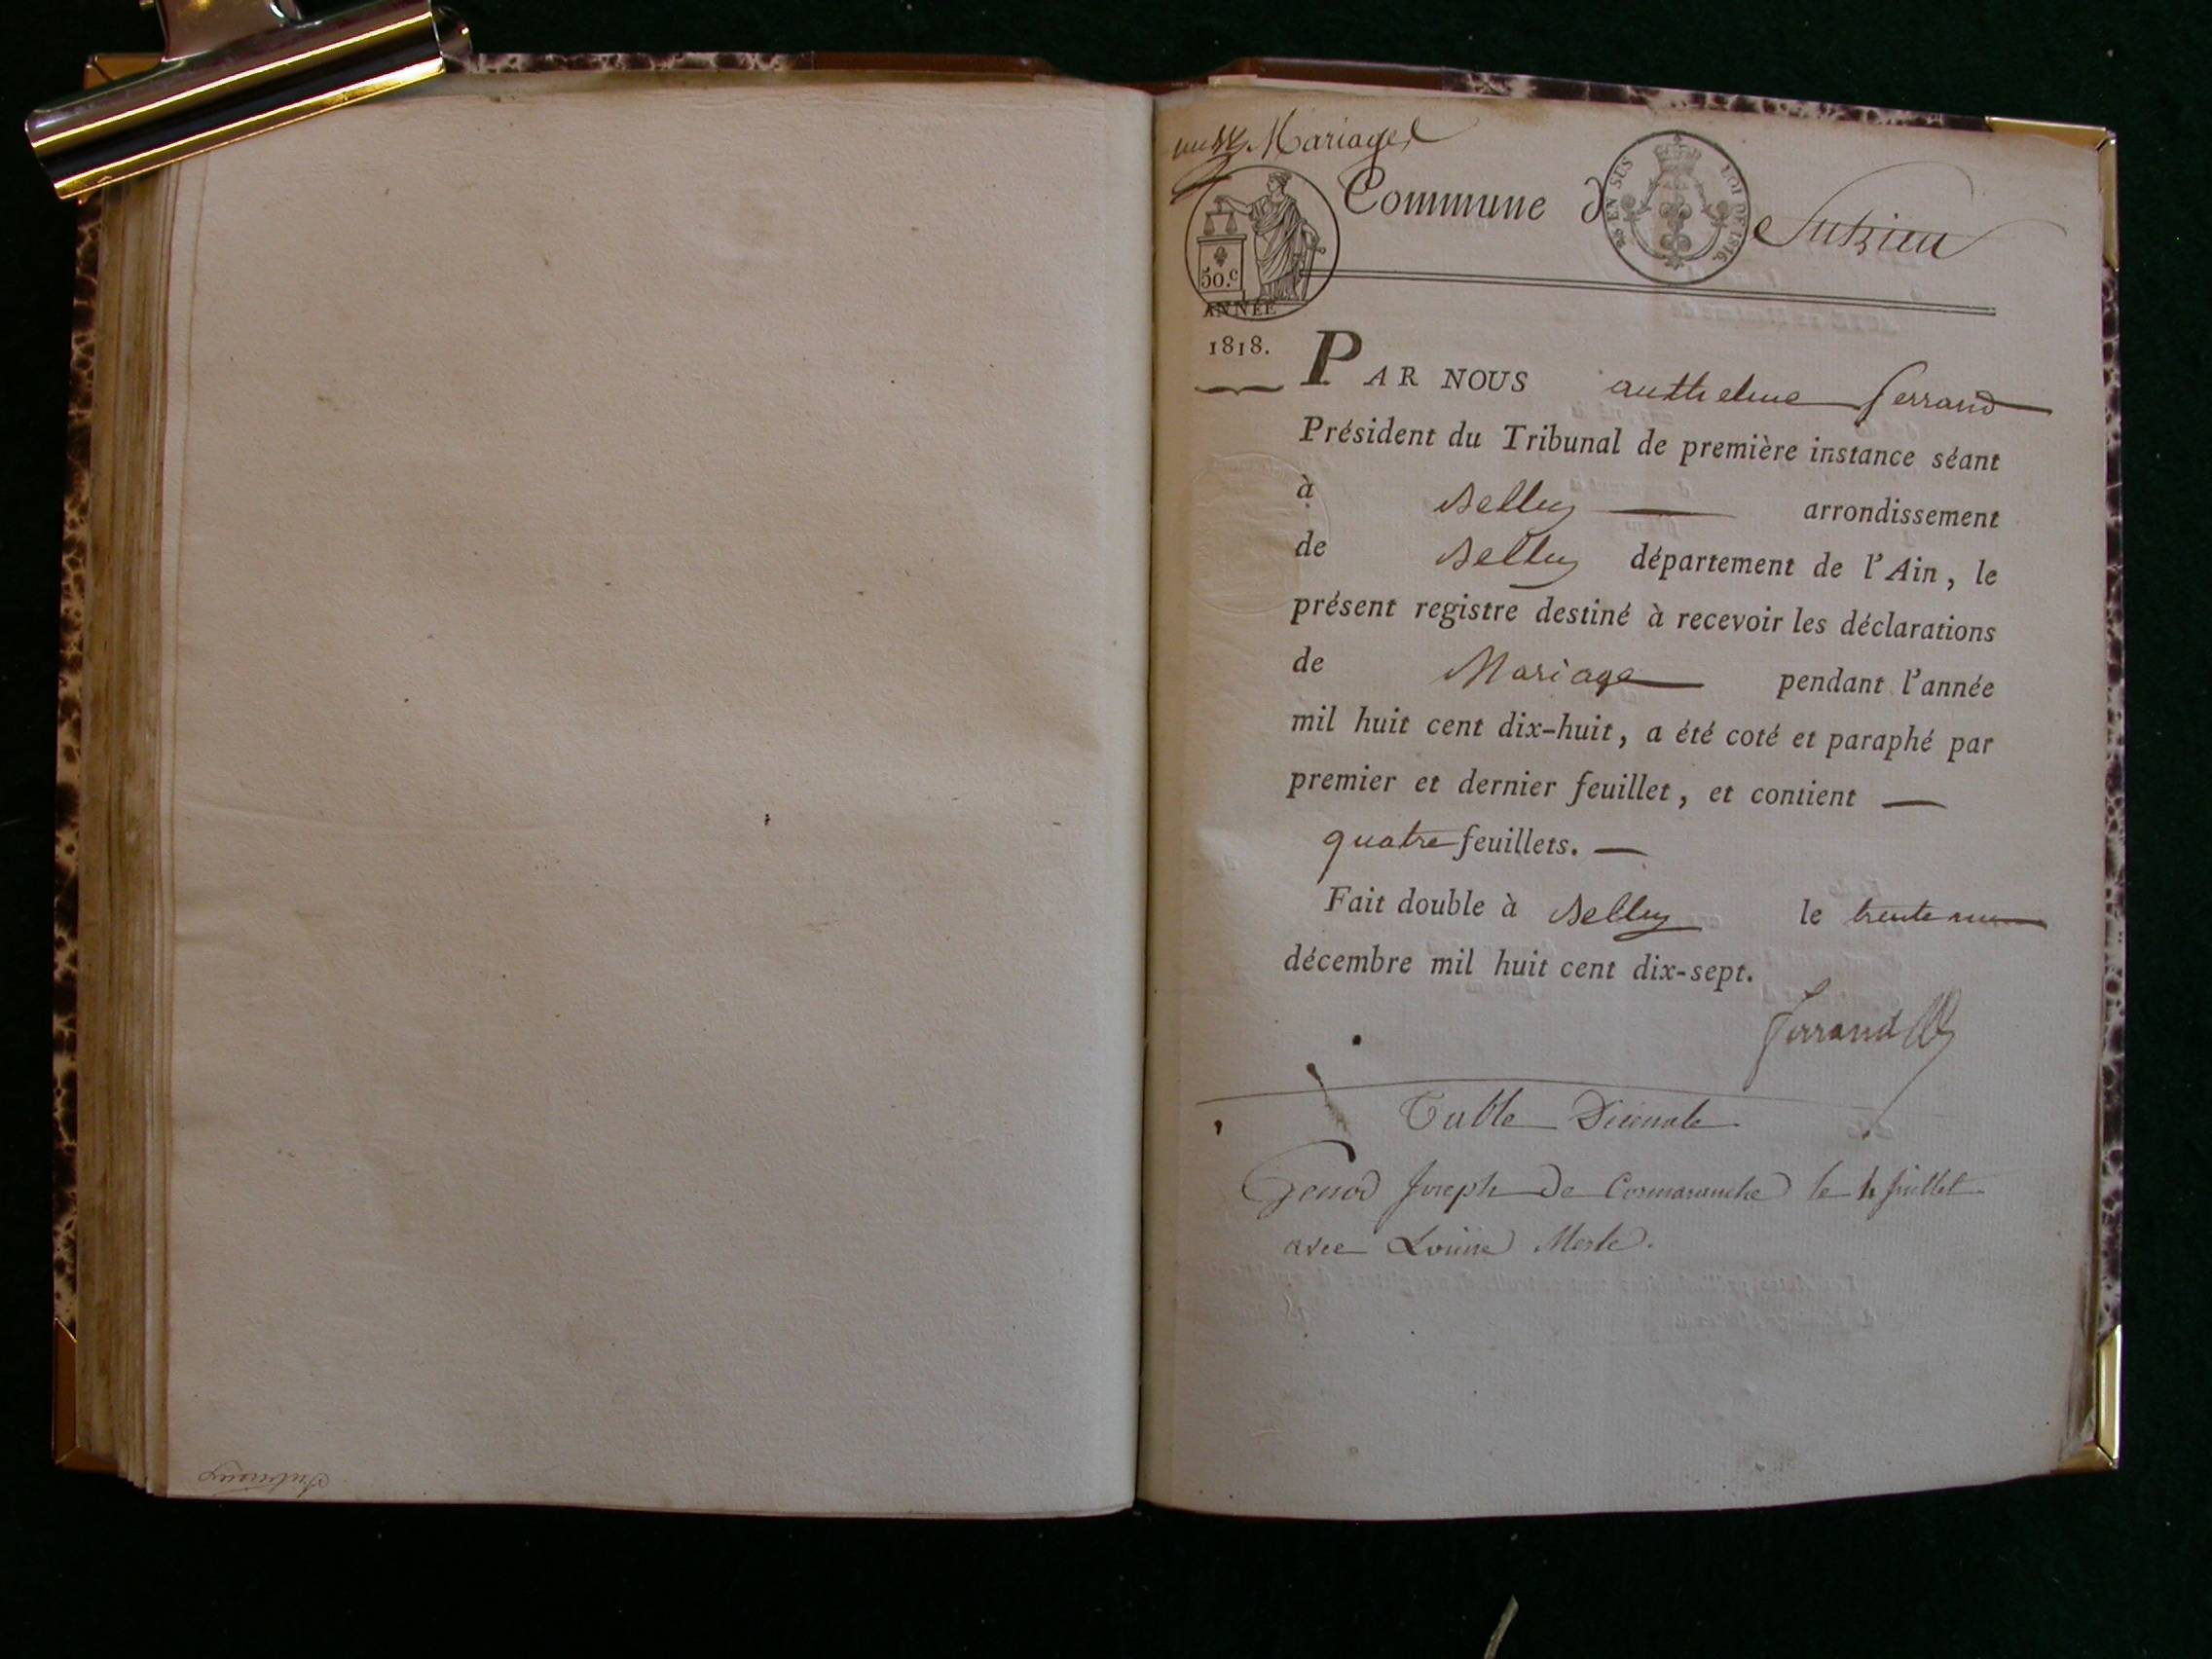 Mariages
Commune de Sutrieu
25 EN SUS LOI DE 1816.
50.c
ANNÉE
1818.
PAR NOUS anthelme ferrand
Président du Tribunal de première instance séant
à Belley arrondissement
de Belley département de l'Ain, le
présent registre destiné à recevoir les déclarations
de Mariage pendant l'année
mil huit cent dix-huit, a été coté et paraphé par
premier et dernier feuillet, et contient —
quatre feuillets. —
Fait double à Belley le trente un
décembre mil huit cent dix-sept.
ferrand
Table Décenale
Genod Joseph de Cormaranche le 4 juillet
avec Louise Merle.